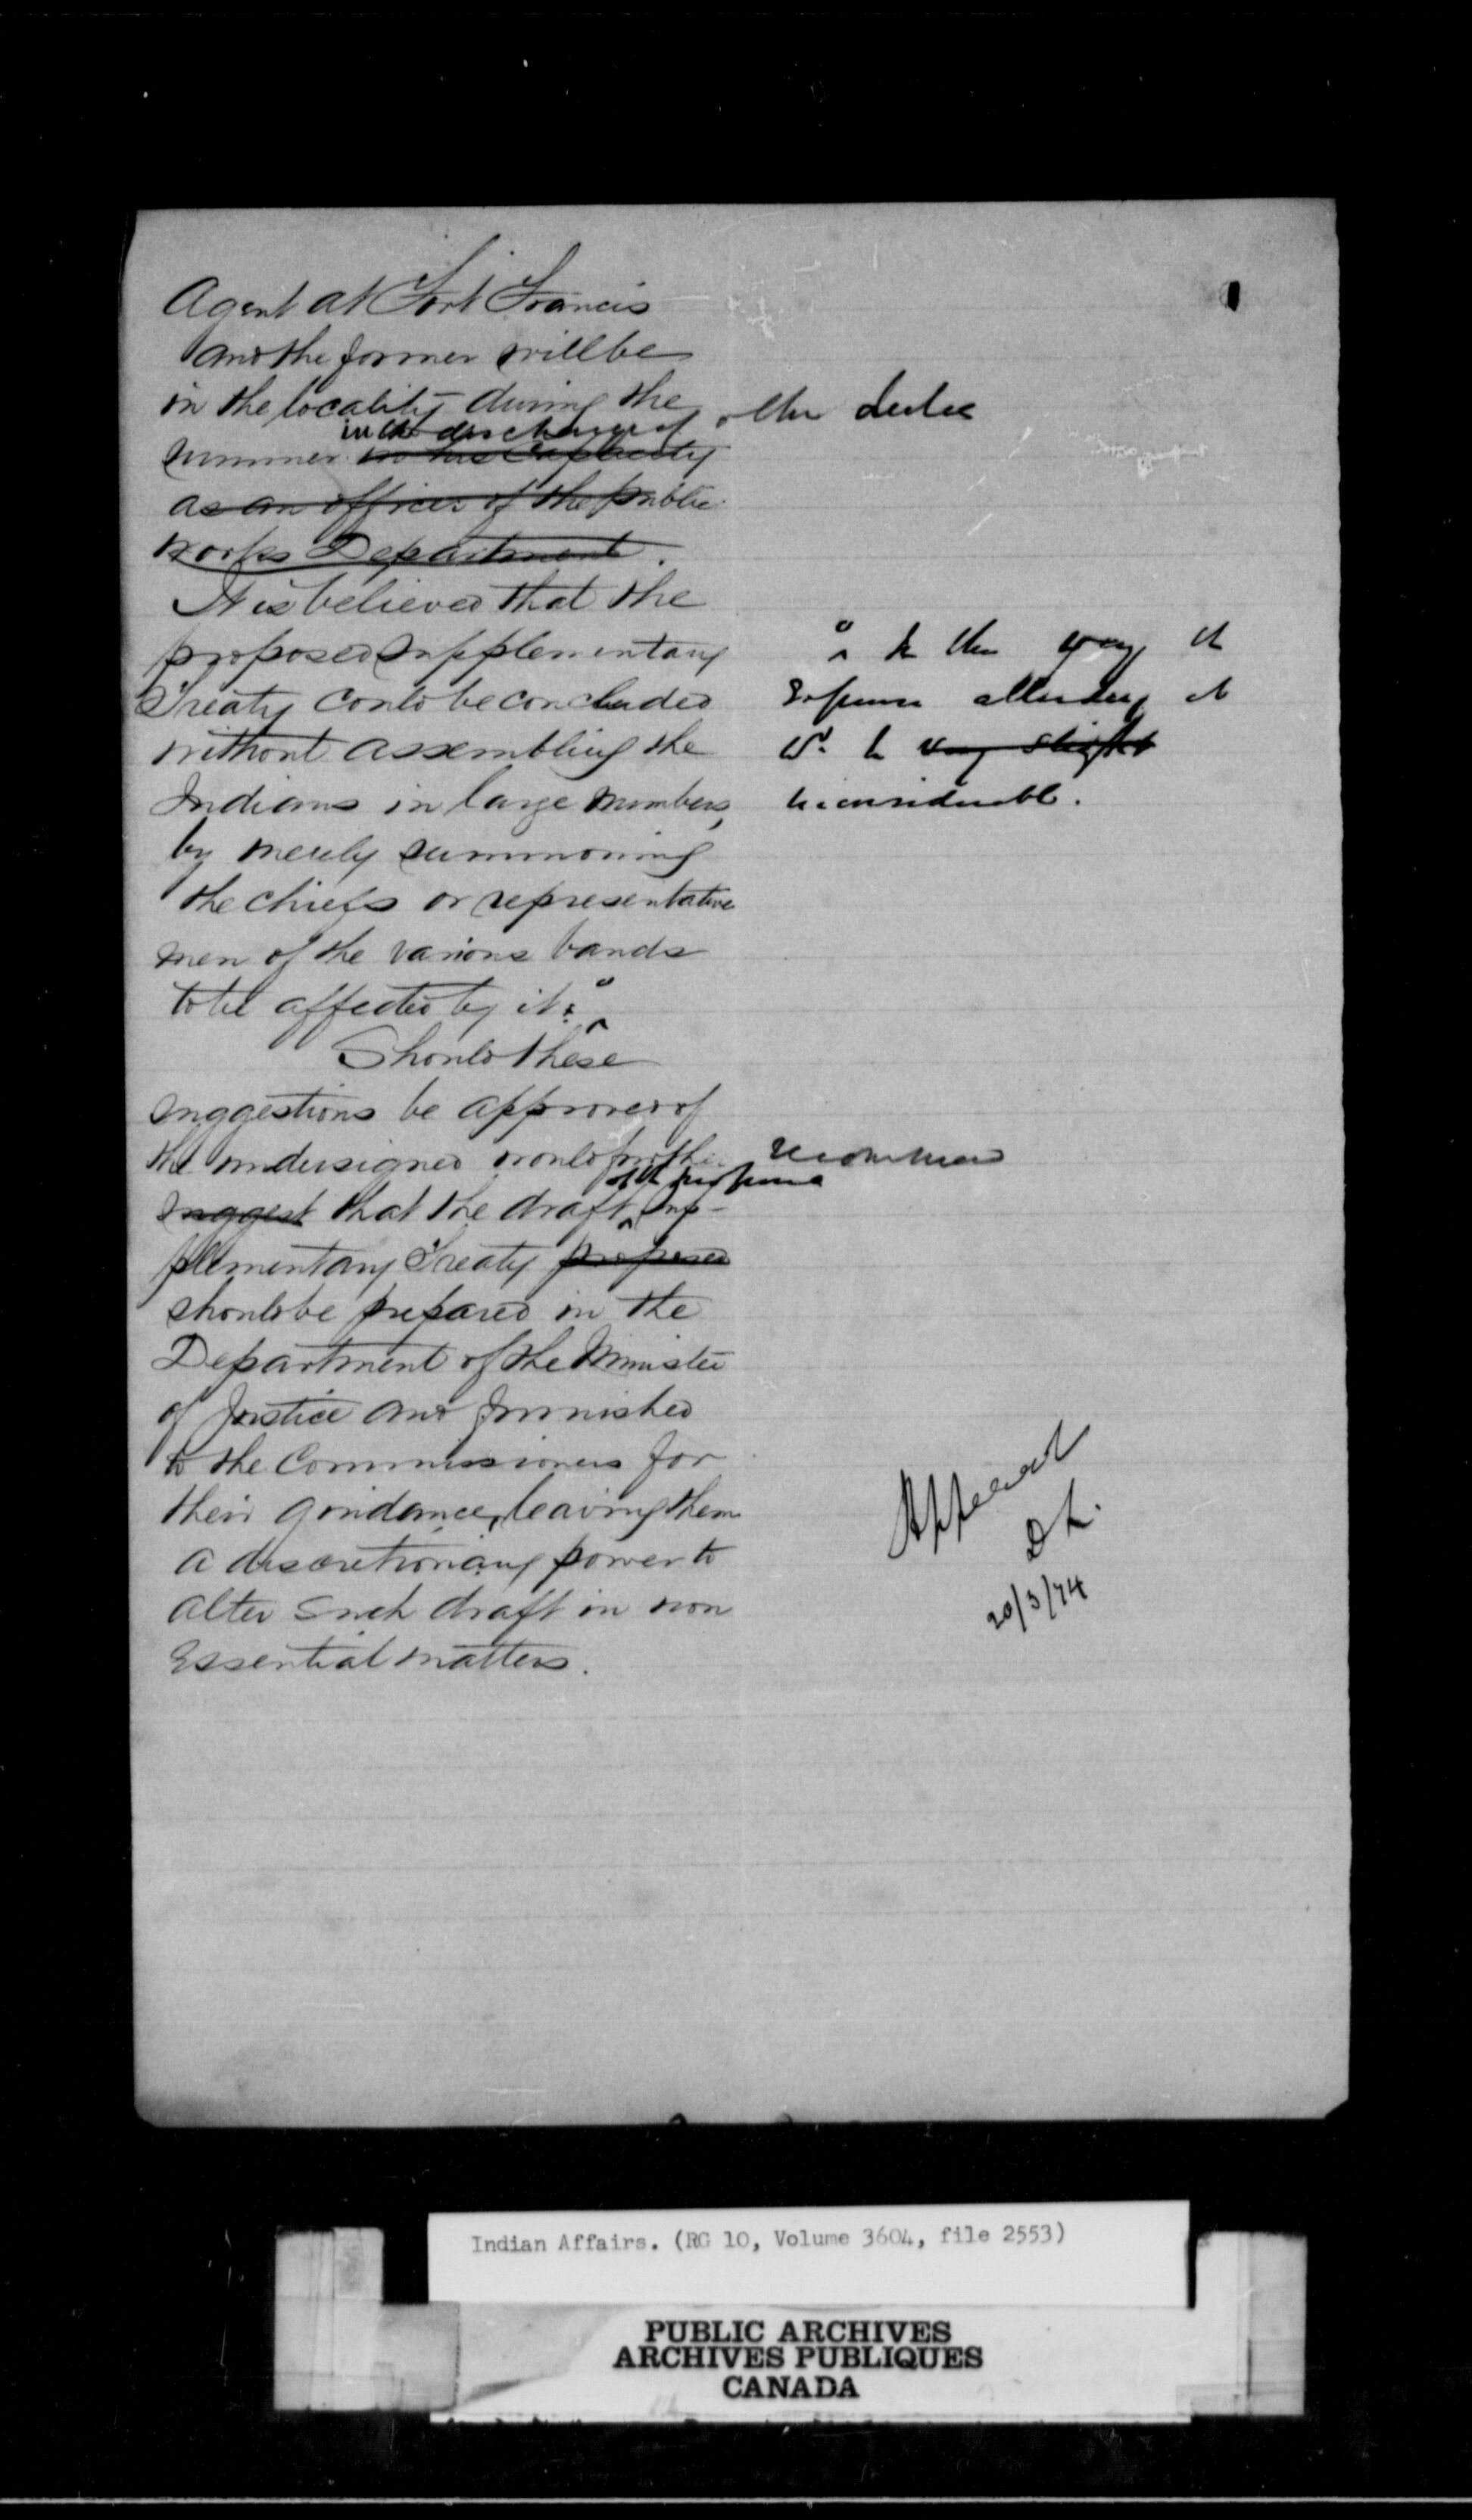 Agent at Fort Francis
and the former will be
in the locality during the
in the discharge of other duties
summer in his Capacity
as an officer of the public
works Department.
It is believed that the
proposed supplementary
Treaty could be concluded
without assembling the
Indians in large numbers,
by merely summoning
the chiefs or representative
men of the various bands
to be affected by it.
In this way the
Expense attending it
wd. be very slight
inconsiderable.
Should these
suggestions be approved of
the undersigned would further recommend
of the proposed
suggest that the draft sup-
plementary Treaty proposed
should be prepared in the
Department of the Minister
of Justice and furnished
to the Commissioners for
their guidance, leaving them
a discretionary power to
alter such draft in non
Essential matters.
Approved
D L.
20/3/74
Indian Affairs. (RG 10, Volume 3604, file 2553)
PUBLIC ARCHIVES
ARCHIVES PUBLIQUES
CANADA